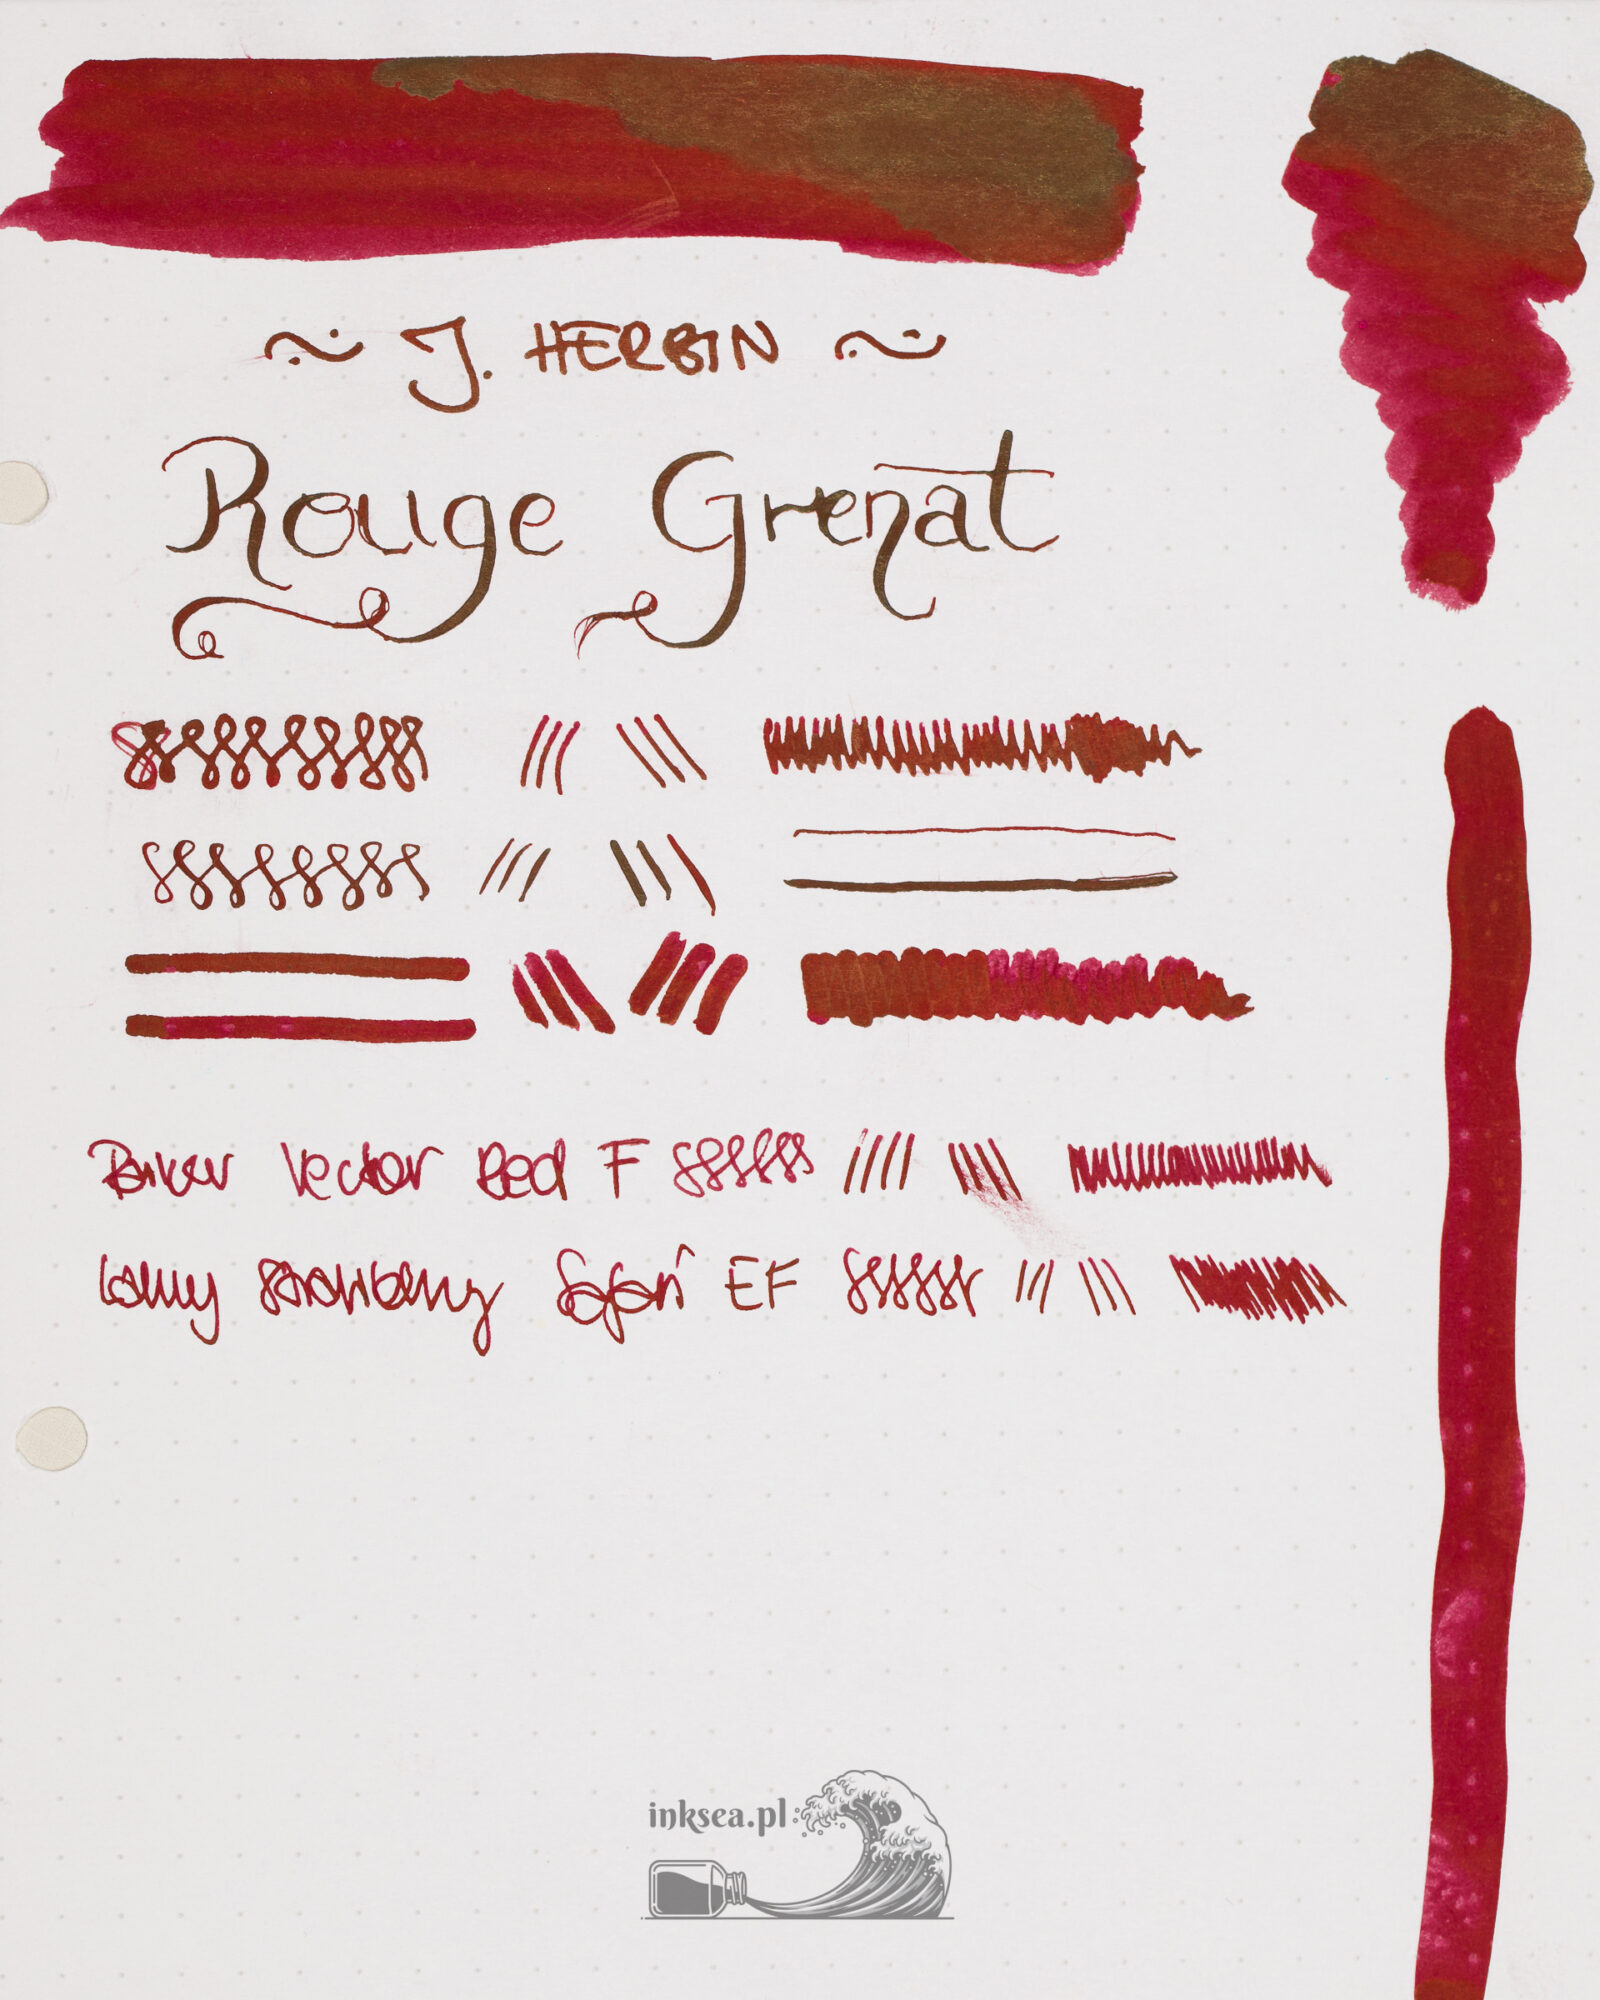 ~ J. HERBIN ~
Rouge Grenat
Parker Vector Red F
Lamy Strawberry Safari EF
inksea.pl